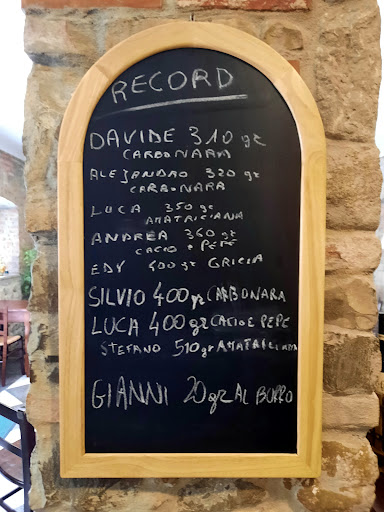 RECORD
DAVIDE 310 gr
CARBONARA
ALEJANDRO 320 gr
CARBONARA
LUCA 350 gr
AMATRICIANA
ANDREA 360 gr
CACIO e PEPE
EDY 400 gr GRICIA
SILVIO 400 gr CARBONARA
LUCA 400 gr CACIO E PEPE
STEFANO 510 gr AMATRICIANA
GIANNI 20 gr AL BURRO